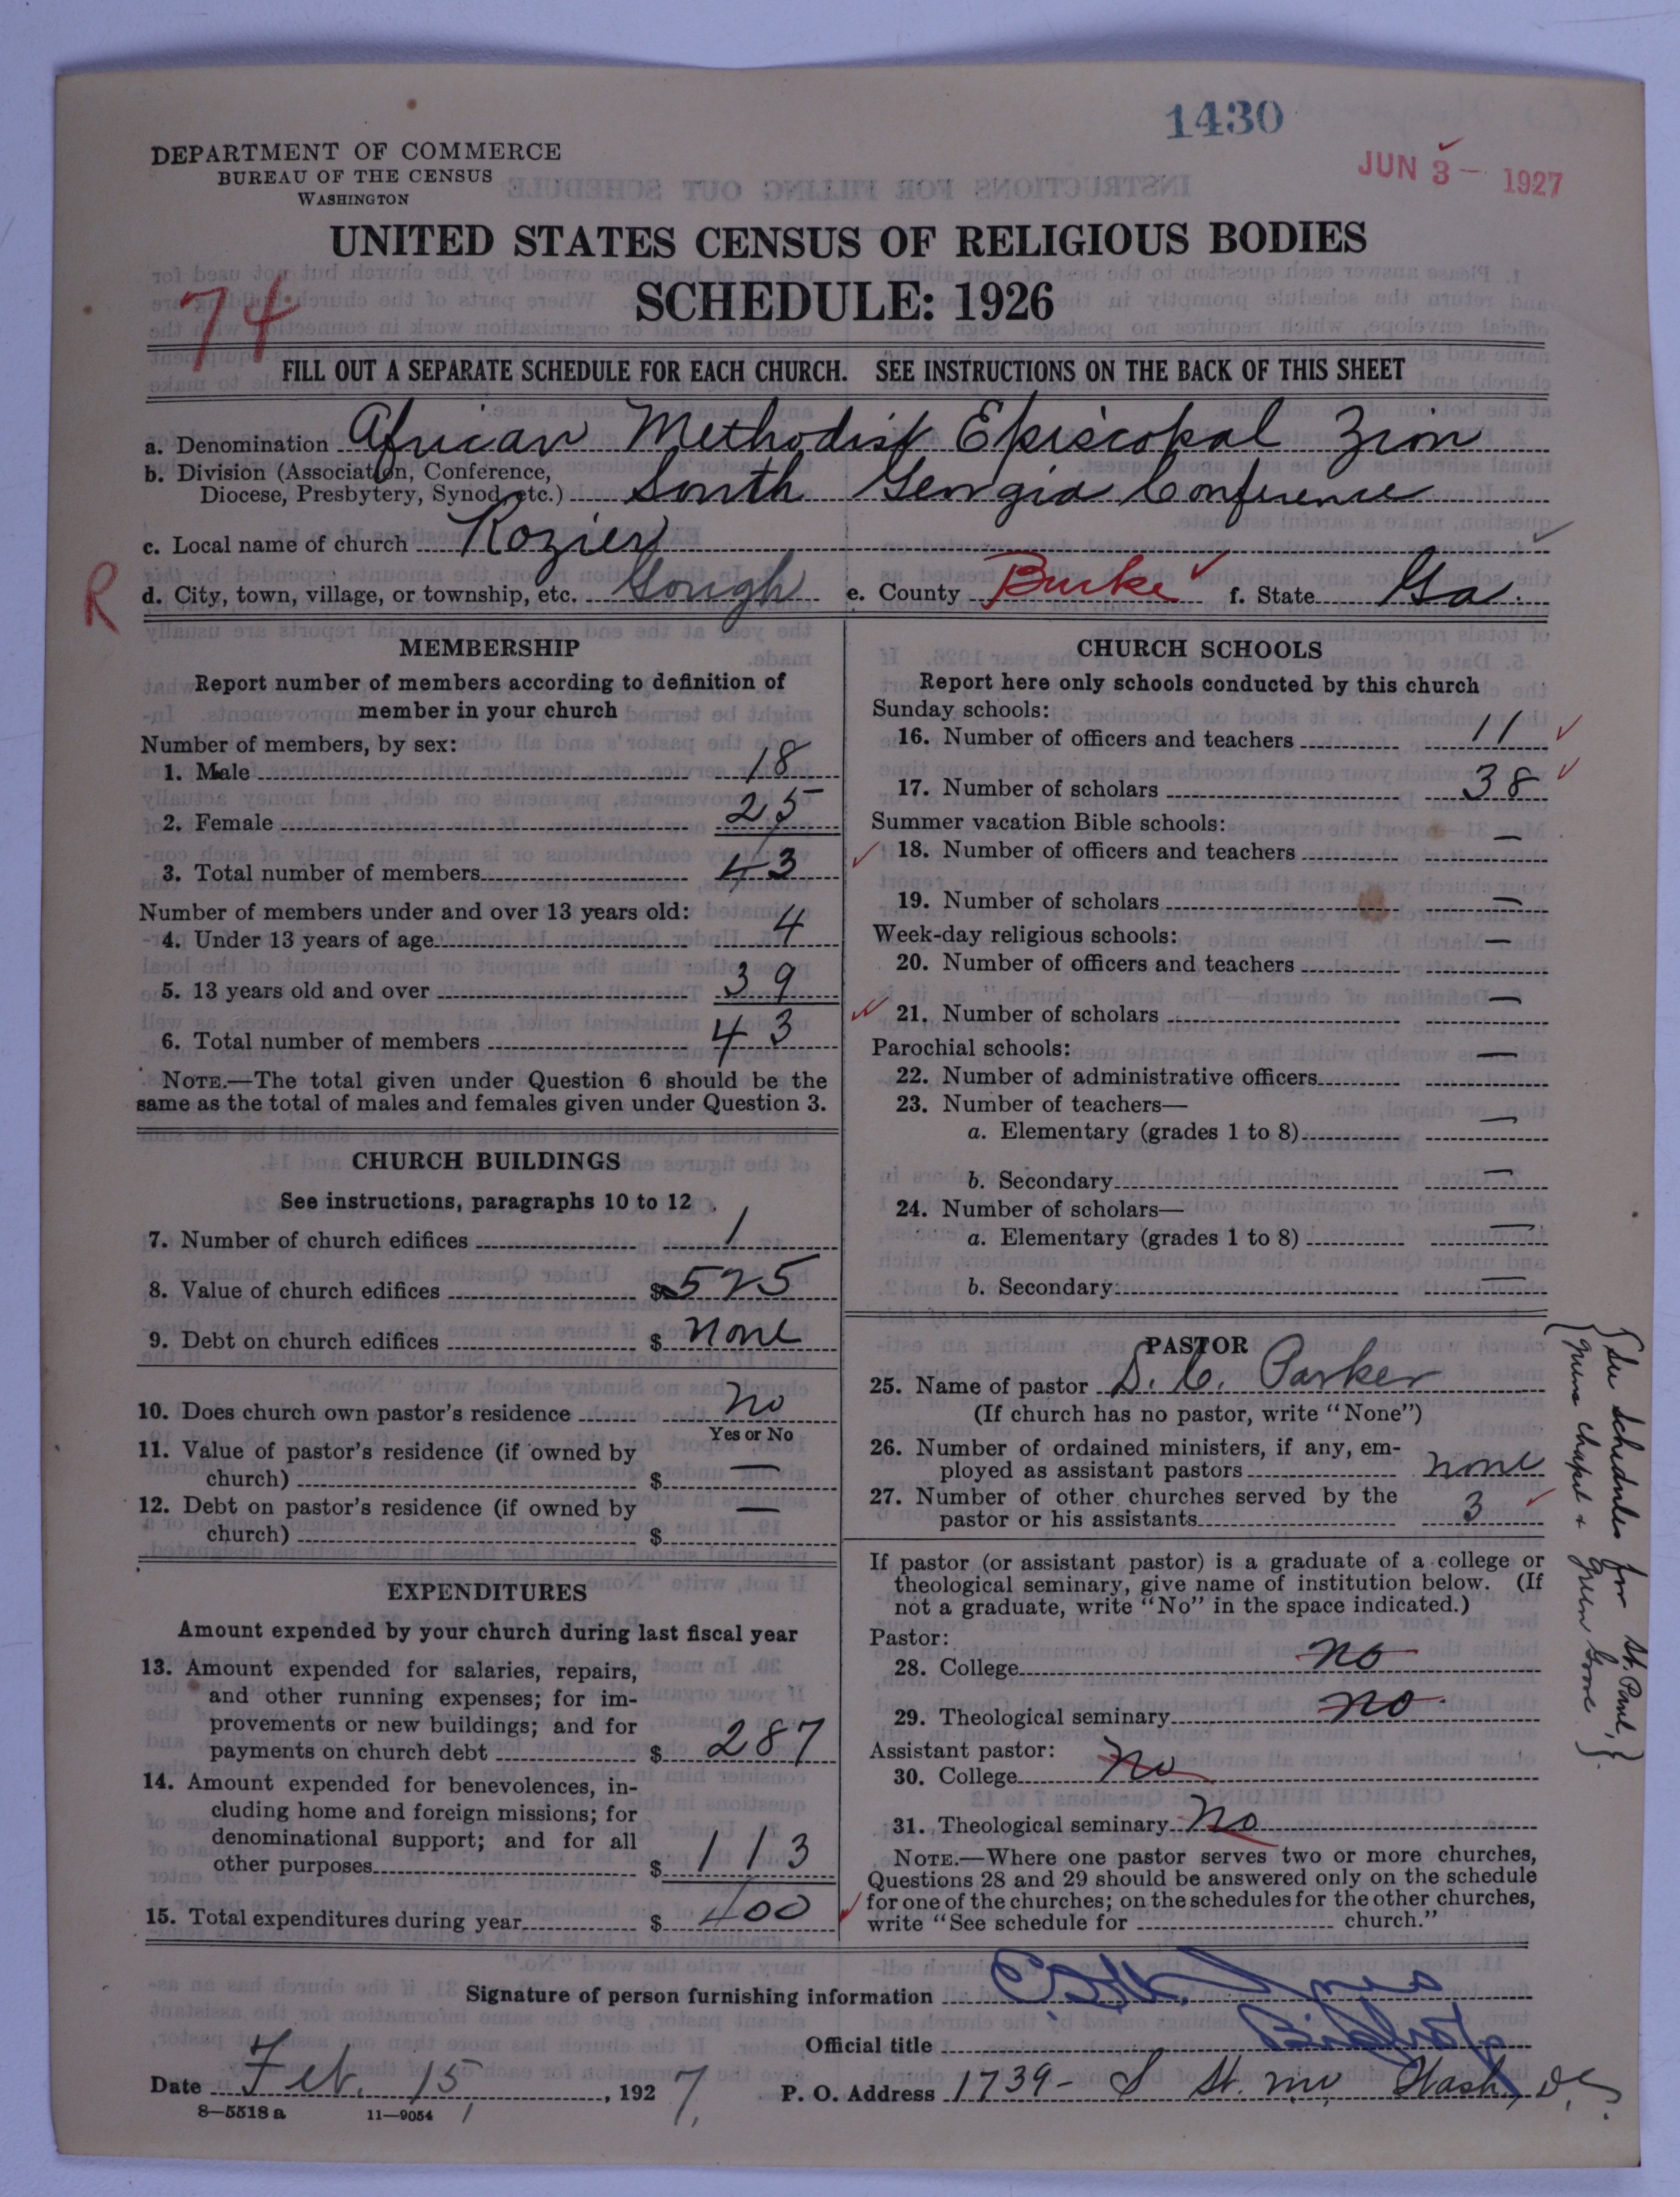 1430
JUN 3 - 1927
DEPARTMENT OF COMMERCE
BUREAU OF THE CENSUS
WASHINGTON
UNITED STATES CENSUS OF RELIGIOUS BODIES
SCHEDULE: 1926
74
FILL OUT A SEPARATE SCHEDULE FOR EACH CHURCH. SEE INSTRUCTIONS ON THE BACK OF THIS SHEET
a. Denomination African Methodist Episcopal Zion
b. Division (Association, Conference,
Diocese, Presbytery, Synod, etc.) South Georgia Conference
c. Local name of church Rozier
R
d. City, town, village, or township, etc. Gough e. County Burke f. State Ga.
MEMBERSHIP
Report number of members according to definition of
member in your church
Number of members, by sex:
1. Male 18
2. Female 25
3. Total number of members 43
Number of members under and over 13 years old:
4. Under 13 years of age 4
5. 13 years old and over 39
6. Total number of members 43
NOTE.—The total given under Question 6 should be the
same as the total of males and females given under Question 3.
CHURCH BUILDINGS
See instructions, paragraphs 10 to 12
7. Number of church edifices 1
8. Value of church edifices $ 525
9. Debt on church edifices $ none
10. Does church own pastor's residence no
Yes or No
11. Value of pastor's residence (if owned by
church) $ —
12. Debt on pastor's residence (if owned by
church) $ —
EXPENDITURES
Amount expended by your church during last fiscal year
13. Amount expended for salaries, repairs,
and other running expenses; for im-
provements or new buildings; and for
payments on church debt $ 287
14. Amount expended for benevolences, in-
cluding home and foreign missions; for
denominational support; and for all
other purposes $ 113
15. Total expenditures during year $ 400
CHURCH SCHOOLS
Report here only schools conducted by this church
Sunday schools:
16. Number of officers and teachers 11
17. Number of scholars 38
Summer vacation Bible schools:
18. Number of officers and teachers —
19. Number of scholars —
Week-day religious schools:
20. Number of officers and teachers —
21. Number of scholars —
Parochial schools:
22. Number of administrative officers —
23. Number of teachers—
a. Elementary (grades 1 to 8) —
b. Secondary —
24. Number of scholars—
a. Elementary (grades 1 to 8) —
b. Secondary —
PASTOR
25. Name of pastor D. C. Parker
(If church has no pastor, write "None")
26. Number of ordained ministers, if any, em-
ployed as assistant pastors none
27. Number of other churches served by the
pastor or his assistants 3
If pastor (or assistant pastor) is a graduate of a college or
theological seminary, give name of institution below. (If
not a graduate, write "No" in the space indicated.)
Pastor:
28. College no
29. Theological seminary no
Assistant pastor:
30. College no
31. Theological seminary no
NOTE.—Where one pastor serves two or more churches,
Questions 28 and 29 should be answered only on the schedule
for one of the churches; on the schedules for the other churches,
write "See schedule for church."
See schedules for St. Paul,
chapel & Green Grove
Signature of person furnishing information
Official title Bishop
Date Feb. 15, 1927 P. O. Address 1739 - S St. nw Wash, DC.
8—5518 a 11—9054